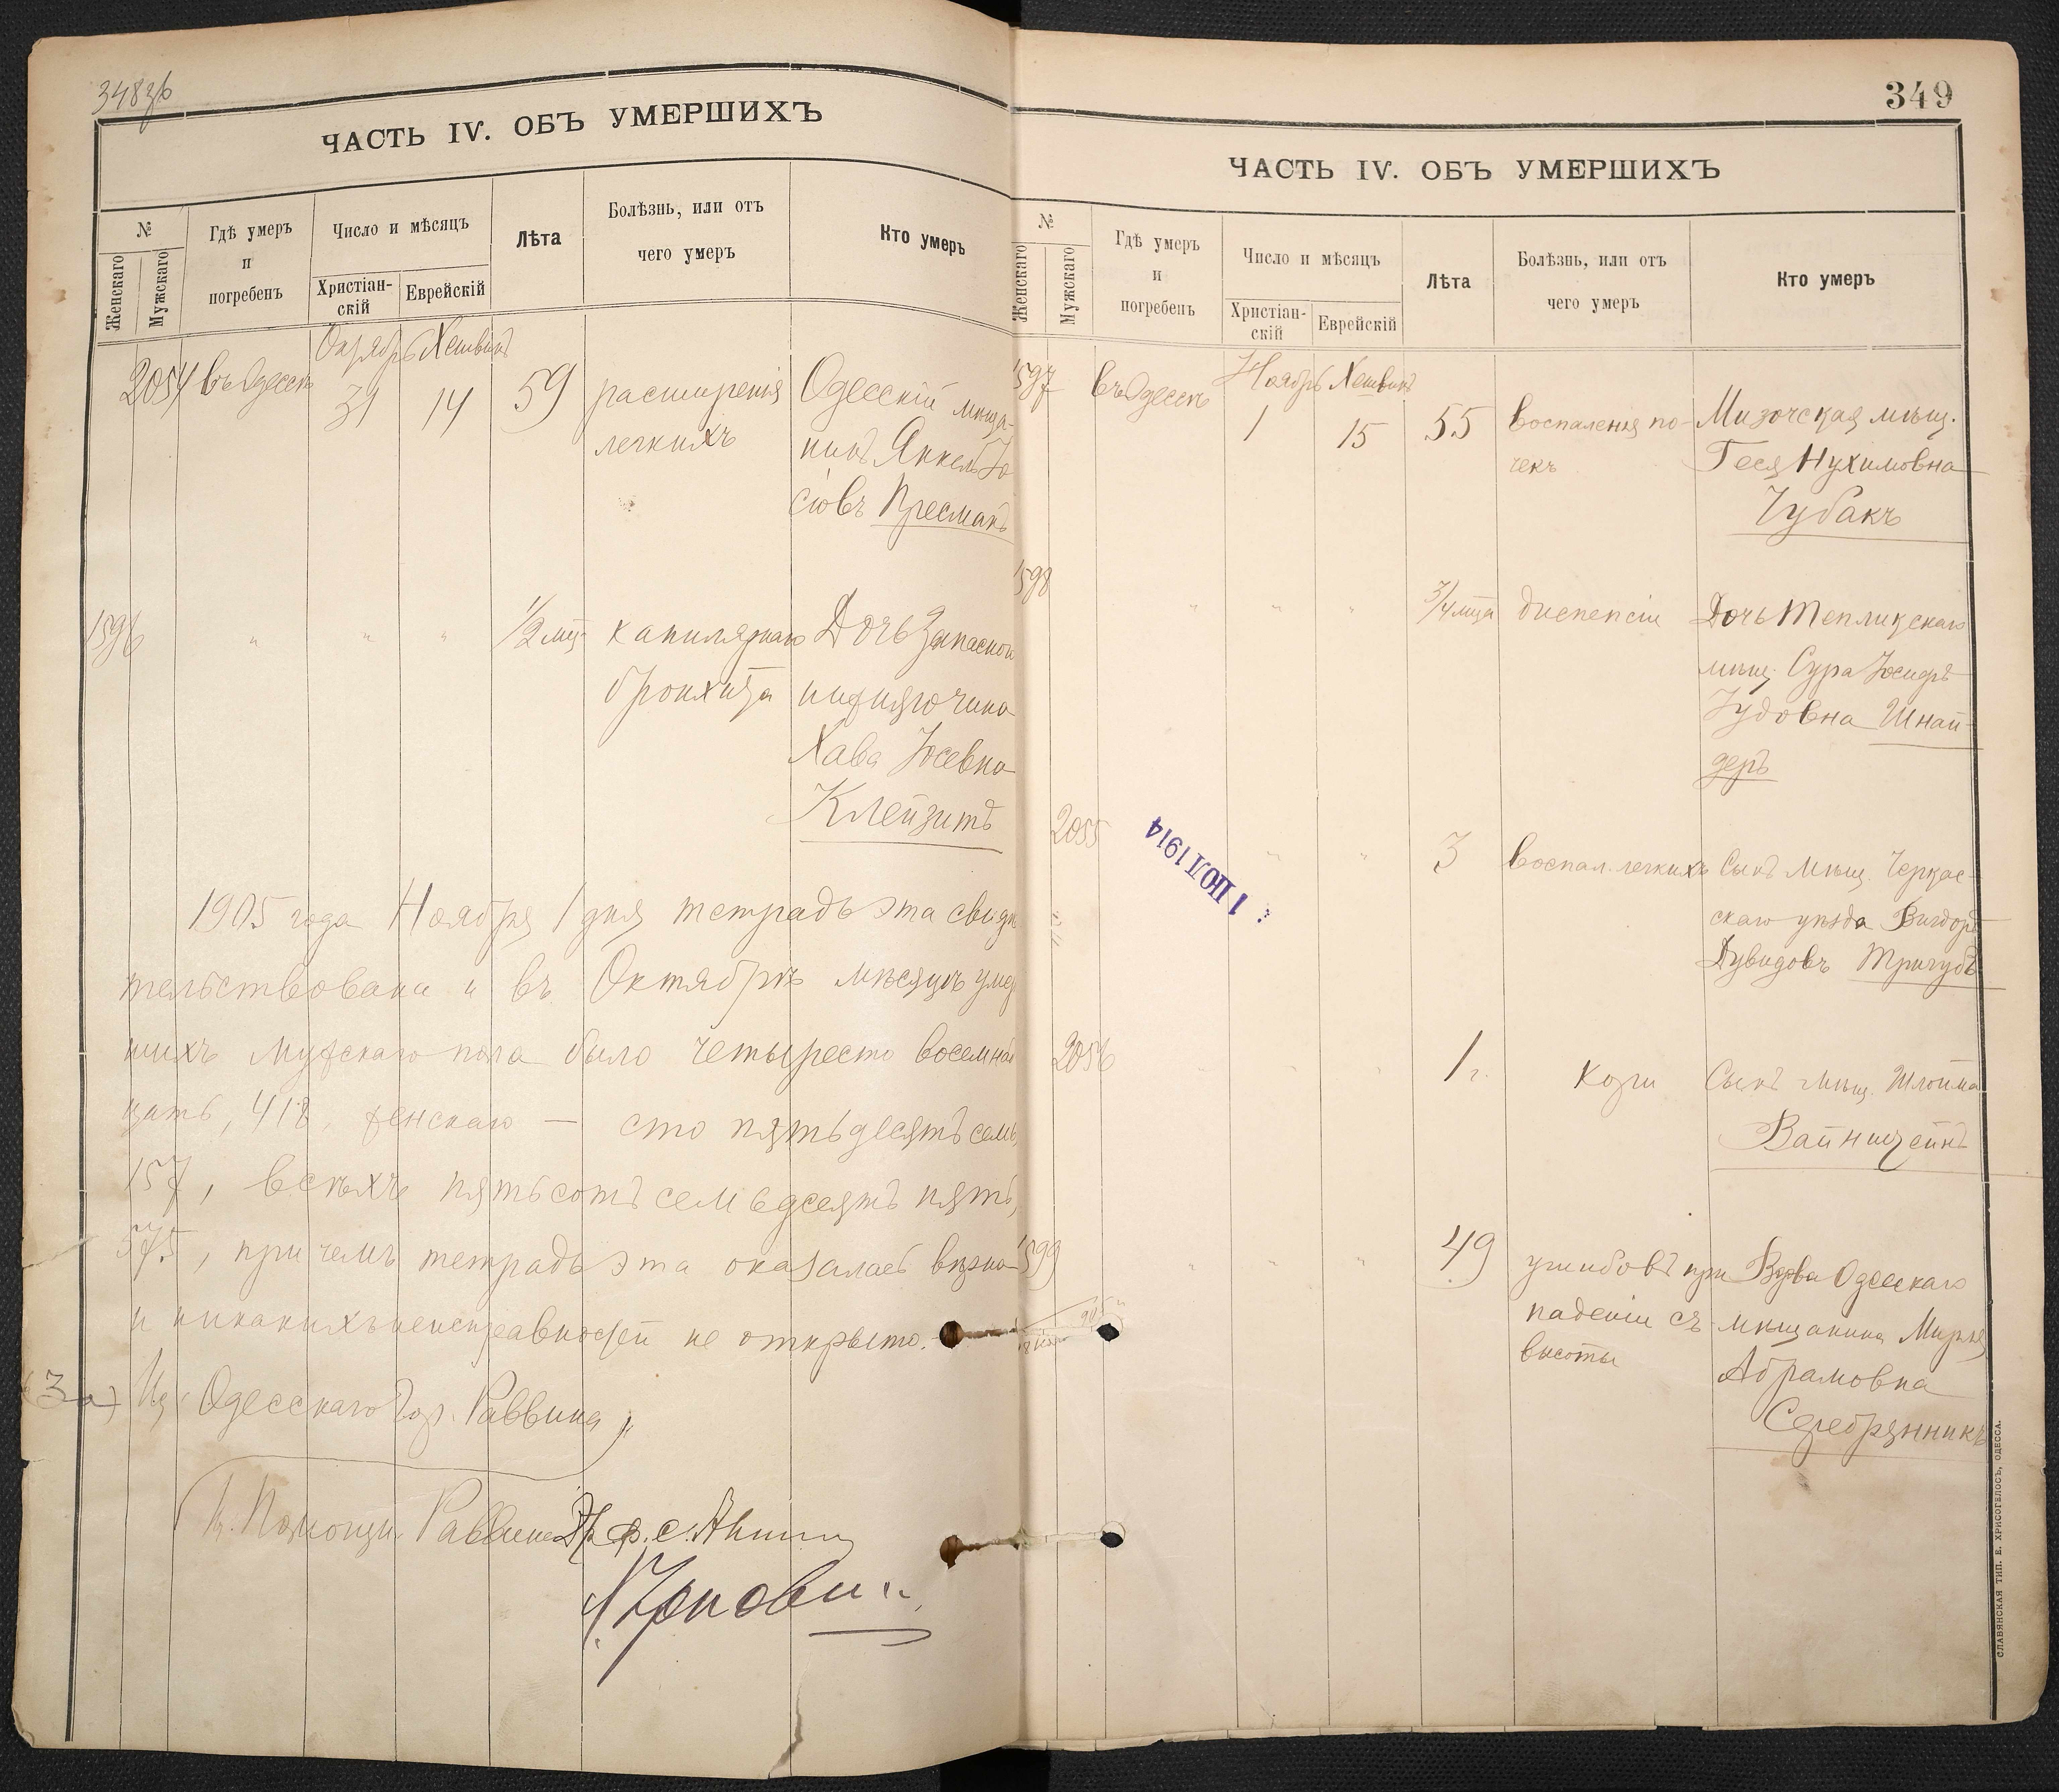 348об
ЧАСТЬ IV. ОБЪ УМЕРШИХЪ
№
Женскаго
Мужскаго
Гдѣ умеръ
и
погребенъ
Число и мѣсяцъ
Христіан-
скій
Еврейскій
Лѣта
Болѣзнь, или отъ
чего умеръ
Кто умеръ
Октябрь Хешвинъ
2054 въ Одессѣ 31 14 59 расширенія Одесскій мѣща-
легкихъ нинъ Янкель Іо
сіовъ Пресманъ
1596 " " " 1/2 мц. капилярнаго Дочь Запаснаго
бронхита
Хава Іосевна
Клейзитъ
1905 года Ноября 1 дня тетрадь эта свидѣ
тельствована и въ Октябрѣ мѣсяцѣ умер
шихъ мужскаго пола было четыресто восемнад
цать, 418, женскаго — сто пятьдесятъ семь,
157, всѣхъ пятьсотъ семьдесятъ пять,
575, при чемъ тетрадь эта оказалась вѣрна
и никакихъ неисправностей не открыто.
За Одесскаго Гор. Раввина
И. Помощн. Раввина
349
ЧАСТЬ IV. ОБЪ УМЕРШИХЪ
№
Женскаго
Мужскаго
Гдѣ умеръ
и
погребенъ
Число и мѣсяцъ
Христіан-
скій
Еврейскій
Лѣта
Болѣзнь, или отъ
чего умеръ
Кто умеръ
Ноябрь Хешвинъ
1597 въ Одессѣ 1 15 55 воспаленія по- Мизочская мѣщ.
чекъ Геся Нухимовна
Чубакъ
1598 " " " 3/4 мца диспепсіи Дочь Тепликскаго
мѣщ. Сура
Іудовна Шнай-
деръ
2055 " " 3 воспал. легкихъ Сынъ мѣщ. Черкас-
скаго уѣзда Вигдоръ
Дувидовъ Тригубъ
1 ІЮЛ 1914
2056 " " " 1 г. кори Сынъ мѣщ. Шлойма
Вайнштейнъ
1599 " " " 49 ушибовъ при Вдова Одесскаго
паденіи съ мѣщанина Мирля
высоты Абрамовна
Серебрянникъ
СЛАВЯНСКАЯ ТИП. Е. ХРИСОГЕЛОСЪ, ОДЕССА.